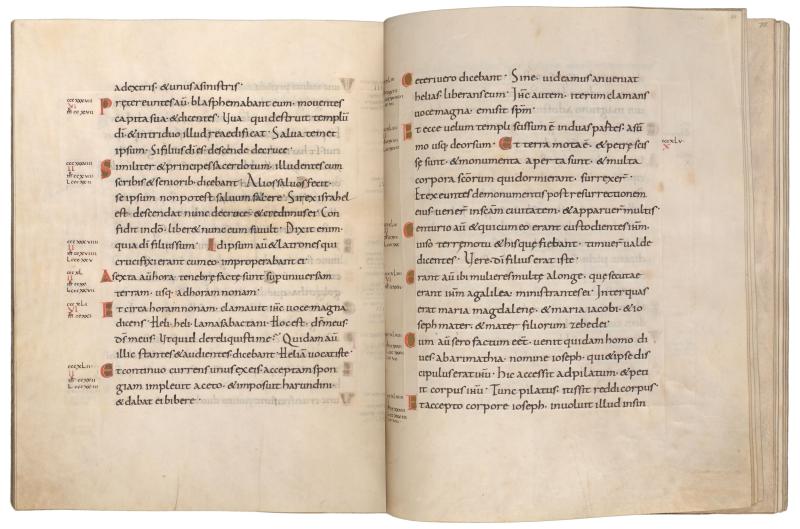 adextris · & unus asinistris ·
Pr&ereuntes aū · blasphemabant eum · mouentes
capita sua · & dicentes · Ua qui destruit templū
dī · & intriduo illud reaedificat · Salua temet
ipsum · Si filius dī es · descende decruce ·
Similiter & principes sacerdotum · illudentes cum
scribis & seniorib: dicebant · Alios saluos fecit ·
se ipsum nonpotest saluum facere · Si rex israhel
est · descendat nunc decruce · & credimus ei · Con
fidit indō · liber& nunc eum si uult · Dixit enim ·
quia dī filius sum · Id ipsum aū & latrones qui
crucifixi erant cum eo · improperabant ei ·
Asexta aū hora tenebre facte sunt sup uniuersam
terram · usq; adhoram nonam ·
Et circa horam nonam · clamauit ihc uoce magna
dicens · Heli · heli · lamasabactani · Hoc est · dr̄ meus
dr̄ meus · Ut quid dereliquisti me · Quidam aū
illic stantes & audientes · dicebant · Heliā uocat iste ·
Et continuo currens unus ex eis · acceptam spon
giam impleuit aceto · & imposuit harundini ·
& dabat ei bibere ·
Ceteri uero dicebant · Sine · uideamus an ueniat
helias · liberans eum · Ihc autem · iterum clamans
uoce magna · emisit spm̄ ·
Et ecce uelum templi scissum ē induas partes · asūm
mo usq; deorsum · Et terra mota ē · & petre scis
se sunt · & monumenta aperta sunt · & multa
corpora scōrum qui dormierant · surrexer̄ ·
Et exeuntes demonumentis post resurrectionem
eius · uener̄ inscām ciuitatem · & apparuer̄ multis ·
Centurio aū & qui cum eo erant custodientes ihm̄ ·
uiso terremotu & his quę fiebant · timuer̄ ualde
dicentes · Uere dī filius erat iste ·
Erant aū ibi mulieres multę alonge · quę secutae
erant ihm̄ agalilea · ministrantes ei · Inter quas
erat maria magdalene · & maria iacobi · & io
seph mater · & mater filiorum zebedei ·
Cum aū sero factum ee&t · uenit quidam homo di
ues abarimathia · nomine ioseph · qui & ipse dis
cipulus erat ihū · Hic accessit adpilatum · & peti
it corpus ihū · Tunc pilatus · iussit reddi corpus ·
Et accepto corpore ioseph · inuoluit illud insin